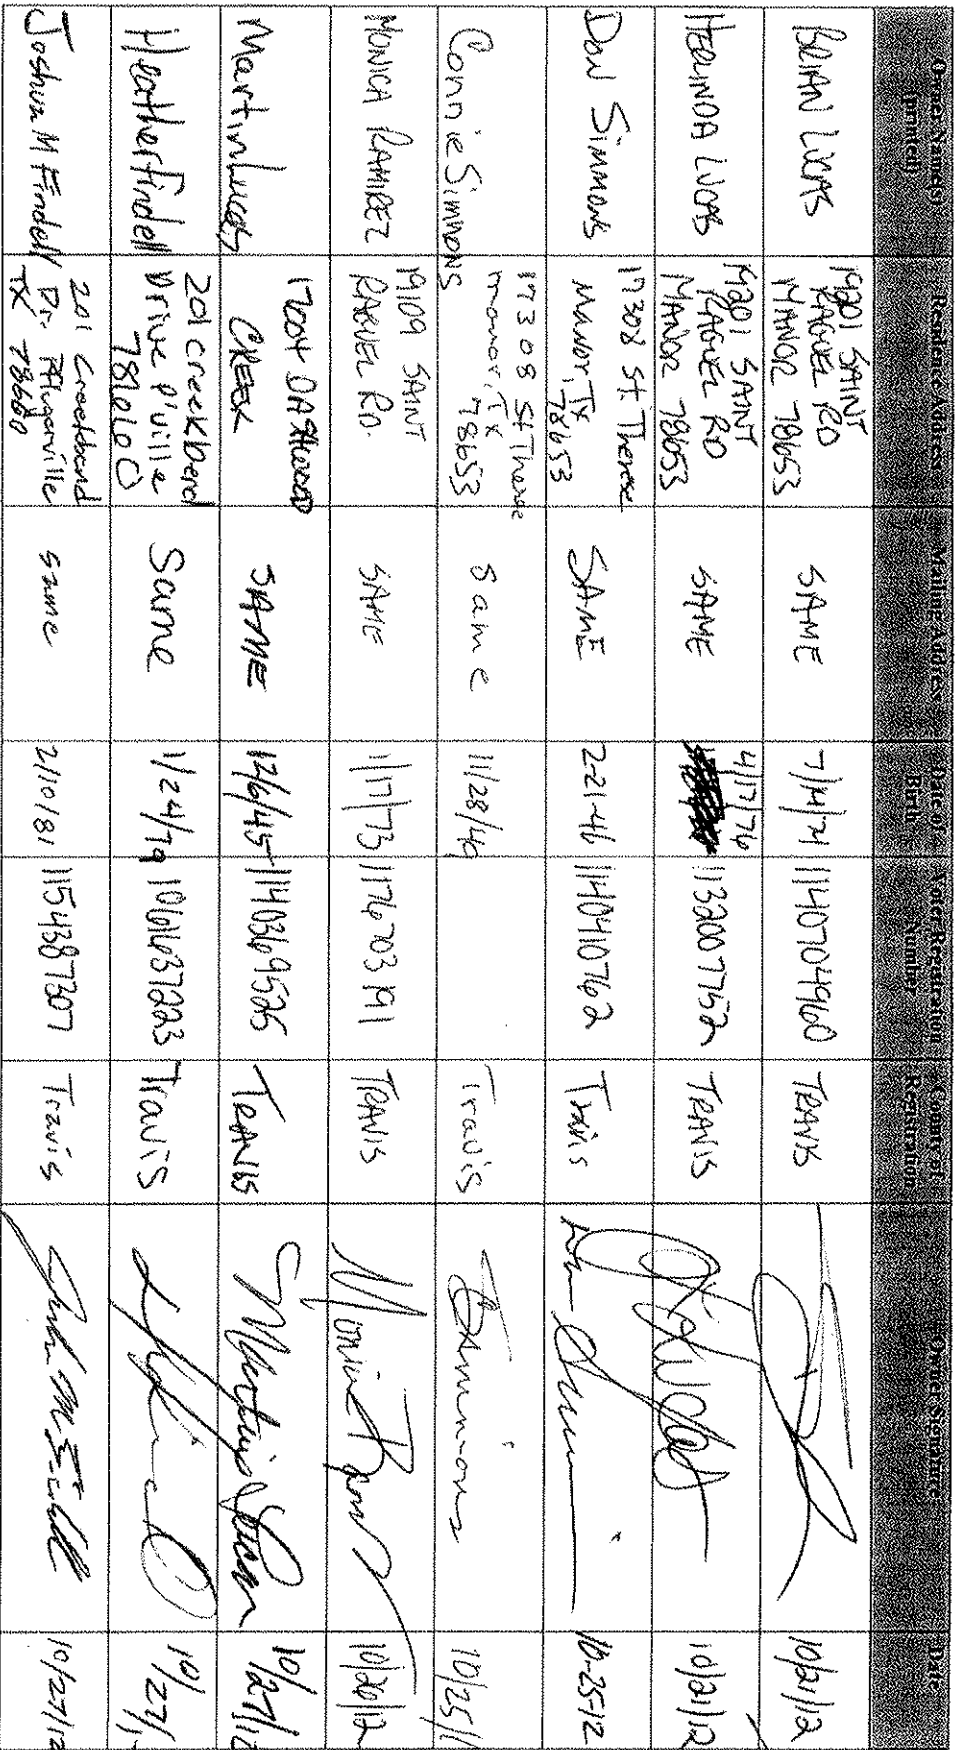 Owner Name (printed) Residence Address Mailing Address Date of Birth Voter Registration Number County of Registration Owner Signature Date
BRIAN LUCAS
19201 SAINT
RAGUEL RD
MANOR 78653
SAME
7/14/71
1140704960
TRAVIS
10/21/12
HERLINDA LUCAS
19201 SAINT
RAGUEL RD
MANOR 78653
SAME
4/17/76
1132007752
TRAVIS
10/21/12
DON SIMMONS
17308 St. Therese
MANOR, TX
78653
SAME
2-21-46
1140410762
Travis
10-25-12
Connie Simmons
17308 St Therese
manor, TX
78653
Same
11/28/49
Travis
Simmons
10/25/1
MONICA RAMIREZ
19109 SAINT
RAGUEL RD.
SAME
1/17/73
1176703191
TRAVIS
10/26/12
Martin Lucas
17004 DASHWOOD
CREEK
SAME
12/6/45
1140369525
TRAVIS
10/27/12
Heather Findell
201 creekbend
Drive P'ville
78660
Same
1/24/79
1061637223
Travis
10/27/
Joshua M Findell
201 Creekbend
Dr. Pflugerville
TX 78660
same
2/10/81
1154387307
Travis
10/27/12